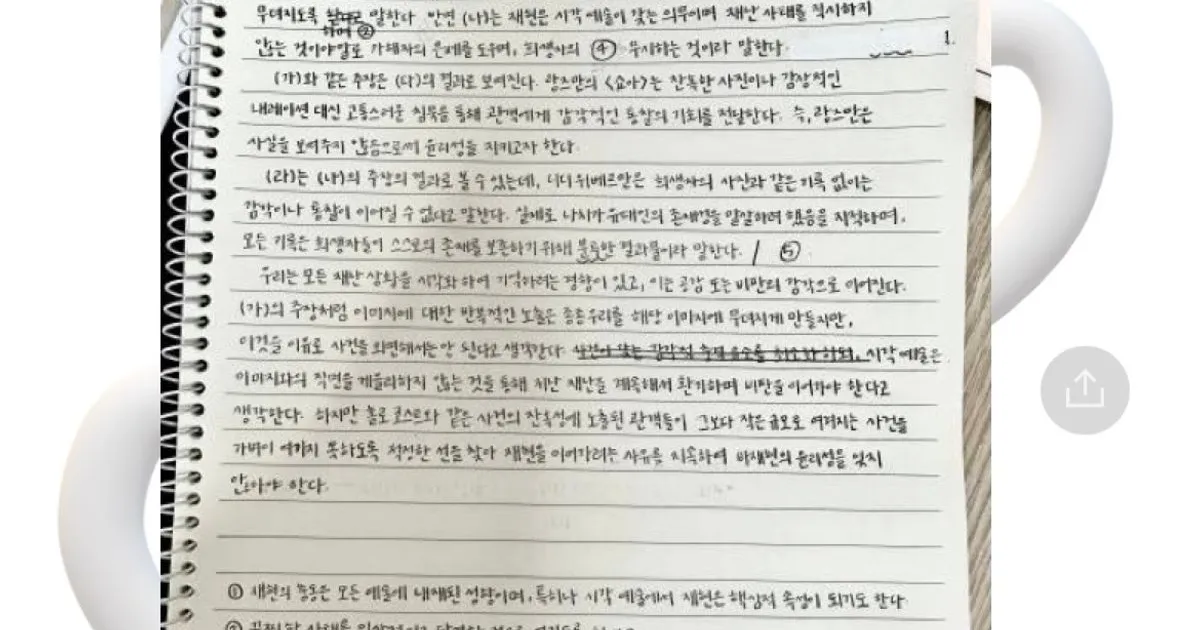 무뎌지도록 한다고 말한다. 반면 (나)는 재현은 시각 예술이 갖는 의무이며 재난 사태를 적시하지
하며 ②
않는 것이야말로 가해자의 은폐를 도우며, 희생자의 ④ 무시하는 것이라 말한다.
1.
(가)와 같은 주장은 (다)의 결과로 보여진다. 랑즈만의 <쇼아>는 잔혹한 사진이나 감상적인
내레이션 대신 고통스러운 침묵을 통해 관객에게 감각적인 통찰의 기회를 전달한다. 즉, 랑즈만은
사실을 보여주지 않음으로써 윤리성을 지키고자 한다.
(라)는 (나)의 주장의 결과로 볼 수 있는데, 디디 위베르만은 희생자의 사진과 같은 기록 없이는
감각이나 통찰이 이어질 수 없다고 말한다. 실제로 나치가 유대인의 존재성을 말살하려 했음을 지적하며,
모든 기록은 희생자들이 스스로의 존재를 보존하기 위해 분투한 결과물이라 말한다. / ⑤
우리는 모든 재난 상황을 시각화 하여 기억하려는 경향이 있고, 이는 공감 또는 비판의 감각으로 이어진다.
(가)의 주장처럼 이미지에 대한 반복적인 노출은 종종 우리를 해당 이미지에 무뎌지게 만들지만,
이것을 이유로 사건을 외면해서는 안 된다고 생각한다. 시각 예술은
이미지와의 직면을 게을리하지 않는 것을 통해 지난 재난을 계속해서 환기하며 비판을 이어가야 한다고
생각한다. 하지만 홀로코스트와 같은 사건의 잔혹성에 노출된 관객들이 그보다 작은 규모로 여겨지는 사건을
가벼이 여기지 못하도록 적정한 선을 찾아 재현을 이어가려는 사유를 지속하며 비재현의 윤리성을 잊지
않아야 한다.
① 재현의 충동은 모든 예술에 내재된 성향이며, 특히나 시각 예술에서 재현은 핵심적 속성이 되기도 한다.